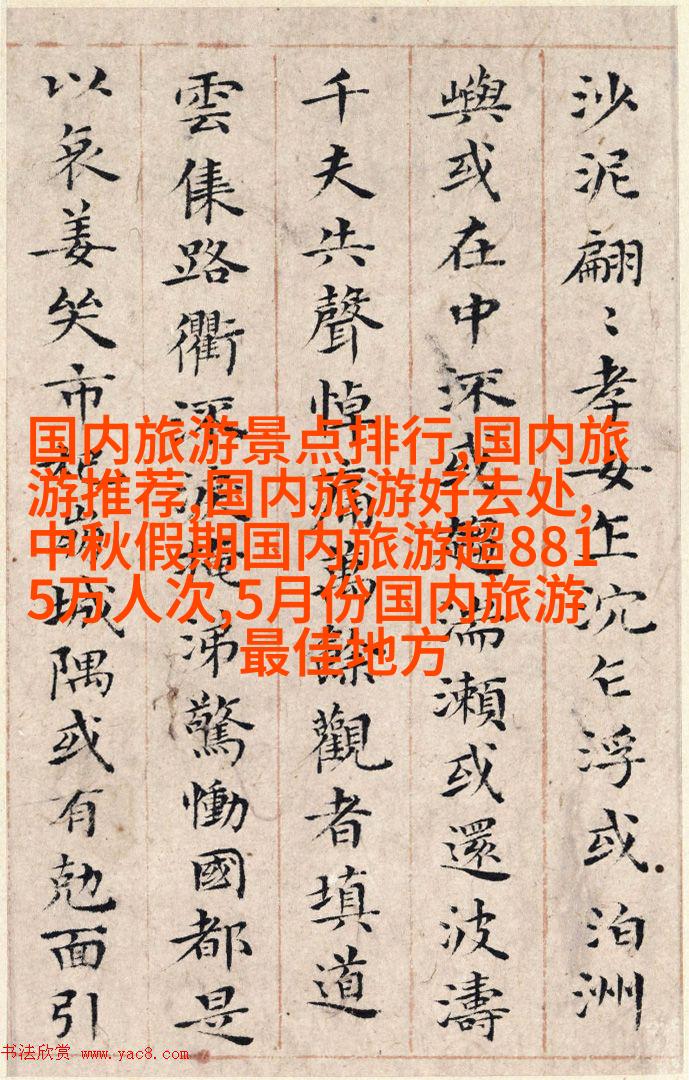 沙泥翩〻孝女乍沉乍浮或泊洲
嶼或在中流或趨湍瀨或還波濤
千夫失聲悼痛萬餘觀者填道
雲集路衢流淚掩涕驚慟國都是
以哀姜哭市杞崩城隅或有勊面引
国内旅游景点排行,国内旅
游推荐,国内旅游好去处,
中秋假期国内旅游超881
5万人次,5月份国内旅游
最佳地方
书法欣赏 www.yac8.com